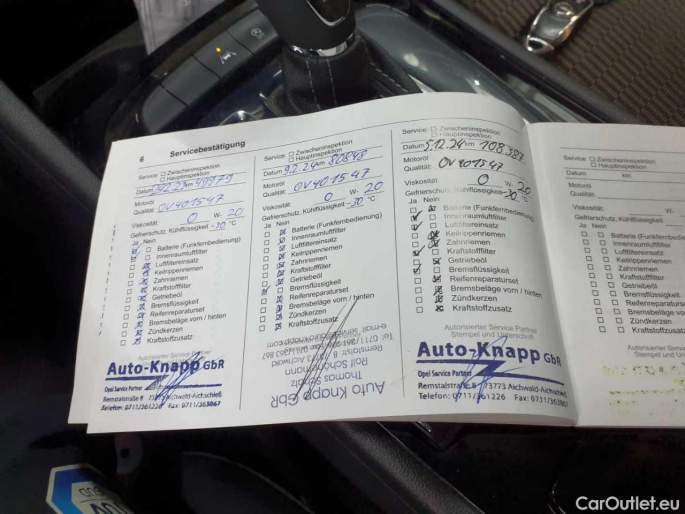 6 Servicebestätigung
Service: Zwischeninspektion
Hauptinspektion
Datum km 49979
Motoröl
Qualität: OV 401547
Viskosität: 0 W- 20
Gefrierschutz, Kühlflüssigkeit -30 °C
Ja Nein
Batterie (Funkfernbedienung)
Innenraumluftfilter
Luftfiltereinsatz
Keilrippenriemen
Zahnriemen
Kraftstofffilter
Getriebeöl
Bremsflüssigkeit
Reifenreparaturset
Bremsbeläge vorn / hinten
Zündkerzen
Kraftstoffzusatz
Autorisierter Service Partner
Stempel und Unterschrift
Auto-Knapp GbR
Opel Service Partner
Remstalstraße 8 73773 Aichwald-Aichschieß
Telefon: 0711/361226 Fax: 0711/363867
Service: Zwischeninspektion
Hauptinspektion
Datum 9.2.24 km 80848
Motoröl
Qualität: OV 401547
Viskosität: 0 W- 20
Gefrierschutz, Kühlflüssigkeit -30 °C
Ja Nein
Batterie (Funkfernbedienung)
Innenraumluftfilter
Luftfiltereinsatz
Keilrippenriemen
Zahnriemen
Kraftstofffilter
Getriebeöl
Bremsflüssigkeit
Reifenreparaturset
Bremsbeläge vorn / hinten
Zündkerzen
Kraftstoffzusatz
Auto Knapp GbR
Thomas
Rolf
Remstalstr. 8 73773 Aichwald
Service: Zwischeninspektion
Hauptinspektion
Datum 5.12.24 km 108.387
Motoröl
Qualität: OV 401547
Viskosität: 0 W- 20
Gefrierschutz, Kühlflüssigkeit -30 °C
Ja Nein
Batterie (Funkfernbedienung)
Innenraumluftfilter
Luftfiltereinsatz
Keilrippenriemen
Zahnriemen
Kraftstofffilter
Getriebeöl
Bremsflüssigkeit
Reifenreparaturset
Bremsbeläge vorn / hinten
Zündkerzen
Kraftstoffzusatz
Autorisierter Service Partner
Stempel und Unterschrift
Auto-Knapp GbR
Opel Service Partner
Remstalstraße 8 73773 Aichwald-Aichschieß
Telefon: 0711/361226 Fax: 0711/363867
Service: Zwischeninspektion
Hauptinspektion
Datum km
Motoröl
Qualität:
Viskosität: W-
Gefrierschutz, Kühlflüssigkeit °C
Ja Nein
Batterie
Innenraumluftfilter
Luftfiltereinsatz
Keilrippenriemen
Zahnriemen
Kraftstofffilter
Getriebeöl
Bremsflüssigkeit
Reifenreparaturset
Bremsbeläge
Zündkerzen
Kraftstoffzusatz
Autorisierter
Stempel
CarOutlet.eu